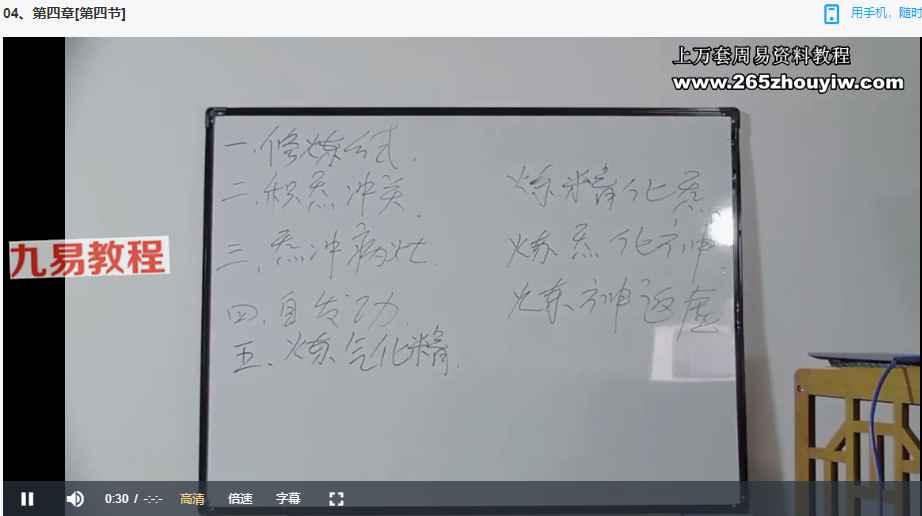 04、第四章[第四节]
用手机，随时
上万套周易资料教程
www.265zhouyiw.com
九易教程
一.修炼公式.
二.积炁冲关.
三.炁冲病灶.
四.自发功.
五.炼气化精.
炼精化炁
炼炁化神.
炼神返虚
0:30 / -:-:-
高清
倍速
字幕